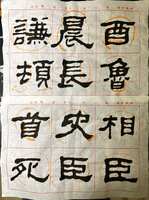 酉魯相臣
晨長史臣
謙頓首死